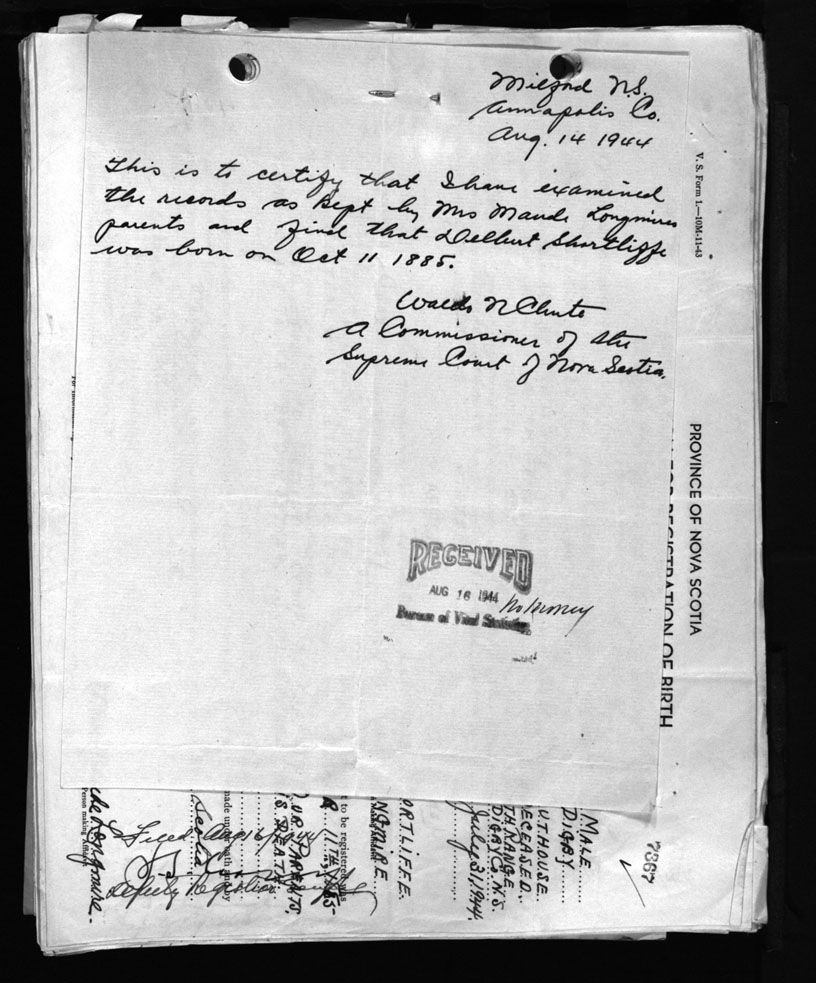 Milford N.S.
Annapolis Co.
Aug. 14 1944
This is to certify that I have examined
the records as kept by Mrs Maude Longmires
parents and find that Delbert Shortliffe
was born on Oct 11 1885.
Waldo N Chute
A Commissioner of the
Supreme Court of Nova Scotia.
RECEIVED
AUG 16 1944
Bureau of Vital Statistics
No Money
V. S. Form 1.—10M-11-43
PROVINCE OF NOVA SCOTIA
REGISTRATION OF BIRTH
7367
MALE
DIGBY
UTHOUSE
ECEASED
THRANGE
DIGBY CO N.S.
July 31, 1944.
ORTLIFFE.
NGMIRE
t to be registered was
R 11TH
OUR PARENTS,
'S DEATH
made under oath
Scotia
Filed Aug 16/1944
Deputy Registrar
Person making Affidavit
Longmire